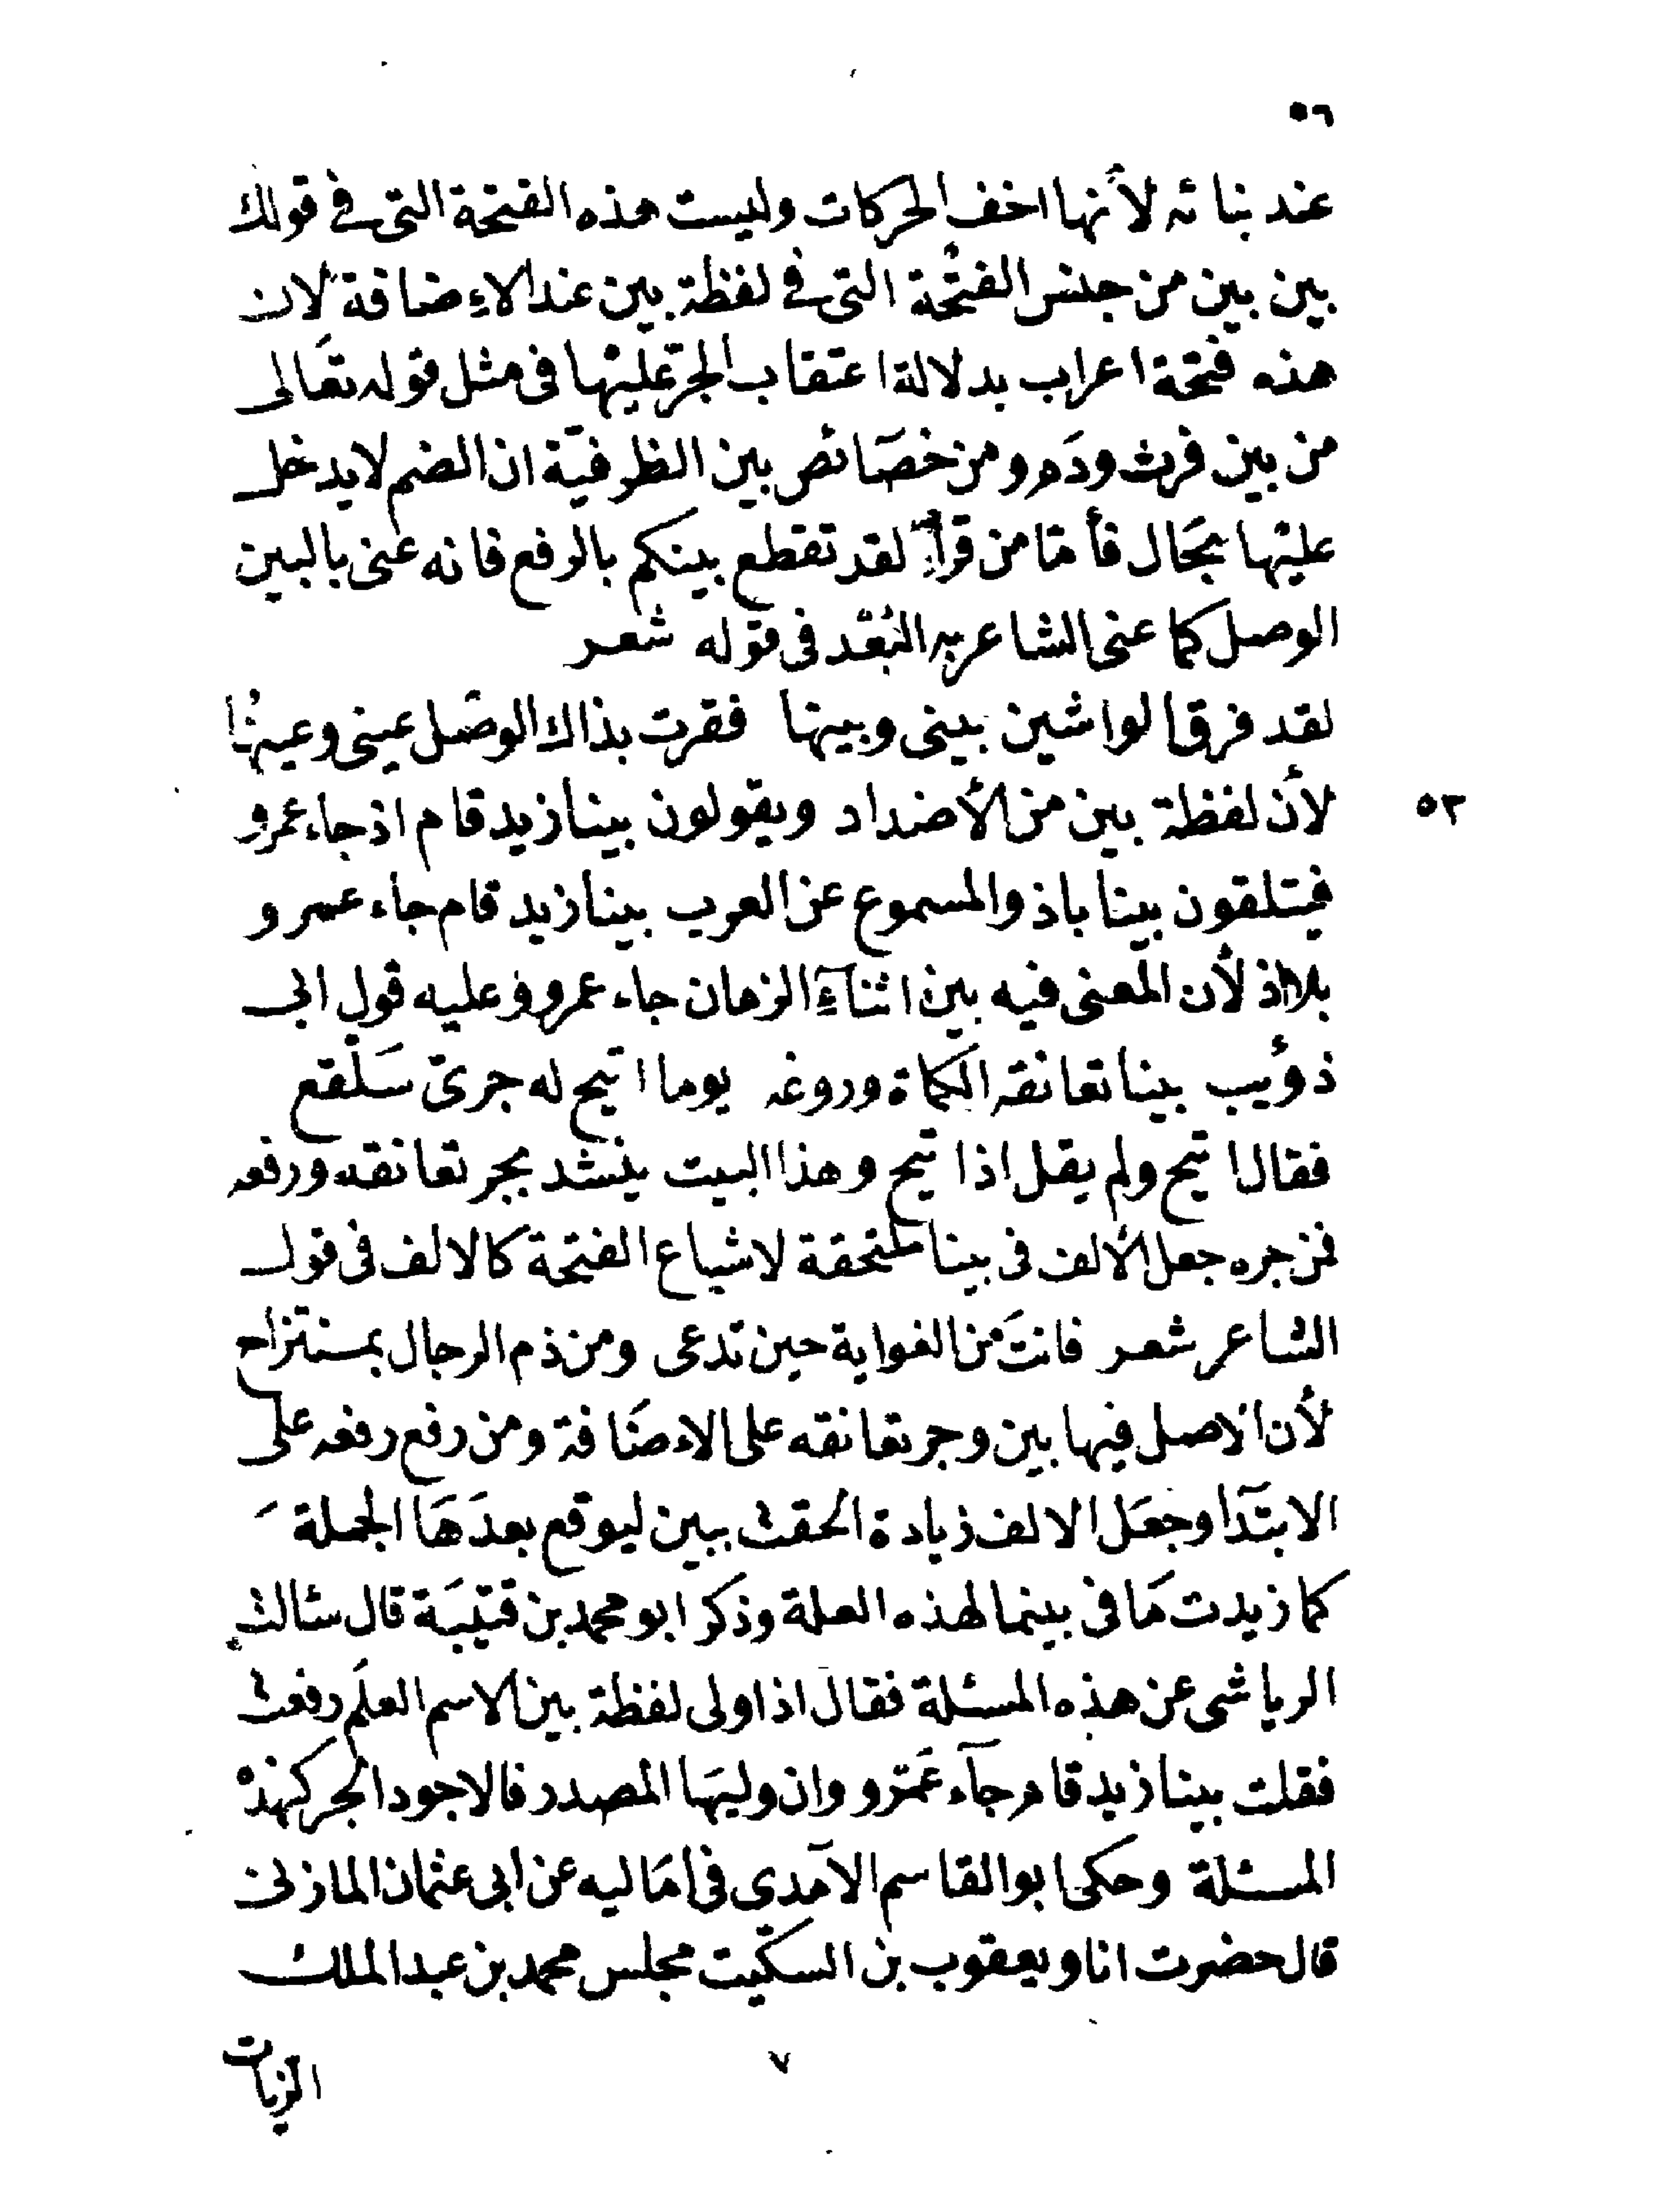 ٥٦
عند بنائه لأنها اخف الحركات وليست هذه الفتحة التى فى قولك
بين بين من جنس الفتحة التى فى لفظة بين عند الاءضافة لان
هذه فتحة اعراب بدلالة اعتقاب الجرّ عليها فى مثل قوله تعَالى
من بين فرث ودَم ومن خصَائص بين الظرفيّة ان الضم لا يدخل
عليها بحَال فأمّا من قرأ لقد تقطع بينكم بالرفع فانه عنى بالبين
الوصل كما عنى الشاعر به البُعْد فى قوله شعر
لقد فرق الواشين بينى وبينها فقرت بذاك الوصل عينى وعينها
لأن لفظة بين من الأضداد ويقولون بينا زيد قام اذ جاء عمرو
٥٣
فيتلقون بينا باذ والمسموع عن العرب بينا زيد قام جاء عمرو
بلا اذ لأن المعنى فيه بين اثنآءِ الزمان جاء عمرو وعليه قول ابى
ذؤيب بينا تعانقه الكماة وروغه يوما اتيح له جرىّ سَلْفع
فقال اتيح ولم يقل اذا تيح وهذا البيت ينشد بجر تعانقه ورفعه
فمن جره جعل الألف فى بينا ملتحقة لاشباع الفتحة كالالف فى قول
الشاعر شعر فانتَ من الغواية حين تدعى ومن ذم الرجال بمنتزاح
لأن الاصل فيها بين وجر تعانقه على الاءضَافة ومن رفع رفعه على
الابتدَآ وجعَل الالف زيادة الحقت ببين ليوقع بعدَهَا الجملة
كما زيدت مَا فى بينما لهذه العلة وذكر ابو محمد بن قتيبَة قال سئالت
الرياشى عن هذه المسئلة فقال اذا ولى لفظة بين الاسم العلَم رفعت
فقلت بينا زيد قام جآء عَمْرو وان وليهَا المصدر فالاجود الجر كهذه
المسئلة وحكى ابو القاسم الآمدى فى امَاليه عن ابى عثمان المازنى
قال حضرت انا ويعقوب بن السكّيت مجلس محمد بن عبد الملك
الزيات
٧